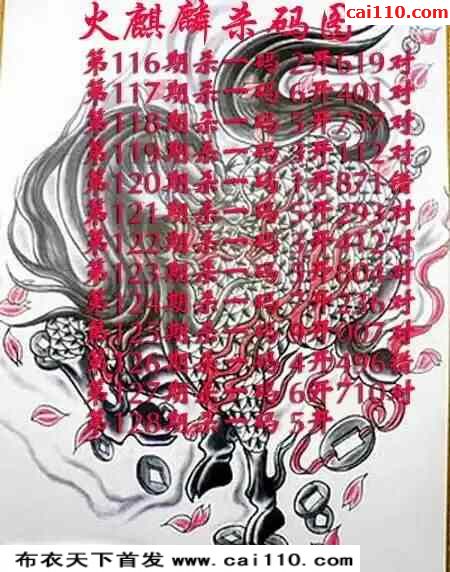 cai110.com
火麒麟杀码图
第116期杀一码2开619对
第117期杀一码6开401对
第118期杀一码5开737对
第119期杀一码3开112对
第120期杀一码1开871错
第121期杀一码5开293对
第122期杀一码 开412对
第123期杀一码 开804对
第124期杀一码 开236对
第125期杀一码 开007对
第126期杀一码4开496错
第127期杀一码6开710对
第128期杀一码5开
布衣天下首发 www.cai110.com